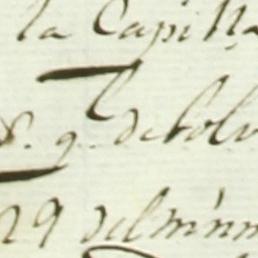 la Capilla
S. q. debolv
29 del mism